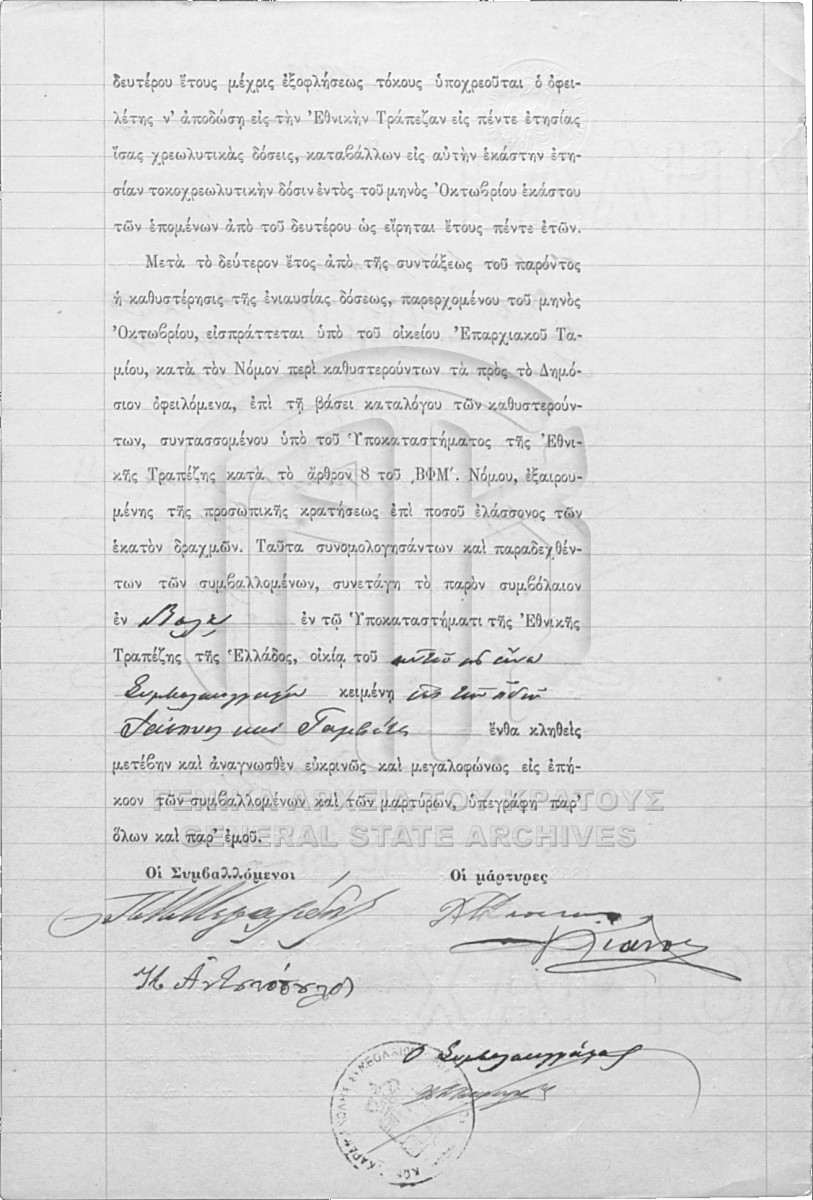 δευτέρου ἔτους μέχρις ἐξοφλήσεως τόκους ὑποχρεοῦται ὁ ὀφει-
λέτης ν' ἀποδώσῃ εἰς τὴν Ἐθνικὴν Τράπεζαν εἰς πέντε ἐτησίας
ἴσας χρεωλυτικὰς δόσεις, καταβάλλων εἰς αὐτὴν ἑκάστην ἐτη-
σίαν τοκοχρεωλυτικὴν δόσιν ἐντὸς τοῦ μηνὸς Ὀκτωβρίου ἑκάστου
τῶν ἑπομένων ἀπὸ τοῦ δευτέρου ὡς εἴρηται ἔτους πέντε ἐτῶν.
Μετὰ τὸ δεύτερον ἔτος ἀπὸ τῆς συντάξεως τοῦ παρόντος
ἡ καθυστέρησις τῆς ἐνιαυσίας δόσεως, παρερχομένου τοῦ μηνὸς
Ὀκτωβρίου, εἰσπράττεται ὑπὸ τοῦ οἰκείου Ἐπαρχιακοῦ Τα-
μίου, κατὰ τὸν Νόμον περὶ καθυστερούντων τὰ πρὸς τὸ Δημό-
σιον ὀφειλόμενα, ἐπὶ τῇ βάσει καταλόγου τῶν καθυστερούν-
των, συντασσομένου ὑπὸ τοῦ Ὑποκαταστήματος τῆς Ἐθνι-
κῆς Τραπέζης κατὰ τὸ ἄρθρον 8 τοῦ ͵ΒΦΜʹ. Νόμου, ἐξαιρου-
μένης τῆς προσωπικῆς κρατήσεως ἐπὶ ποσοῦ ἐλάσσονος τῶν
ἑκατὸν δραχμῶν. Ταῦτα συνομολογησάντων καὶ παραδεχθέν-
των τῶν συμβαλλομένων, συνετάγη τὸ παρὸν συμβόλαιον
ἐν Βόλῳ ἐν τῷ Ὑποκαταστήματι τῆς Ἐθνικῆς
Τραπέζης τῆς Ἑλλάδος, οἰκίᾳ τοῦ
κειμένῃ
καὶ ἔνθα κληθεὶς
μετέβην καὶ ἀναγνωσθὲν εὐκρινῶς καὶ μεγαλοφώνως εἰς ἐπή-
κοον τῶν συμβαλλομένων καὶ τῶν μαρτύρων, ὑπεγράφη παρ'
ὅλων καὶ παρ' ἐμοῦ.
ΓΕΝΙΚΑ ΑΡΧΕΙΑ ΤΟΥ ΚΡΑΤΟΥΣ
GENERAL STATE ARCHIVES
Οἱ Συμβαλλόμενοι Οἱ μάρτυρες
Ὁ Συμβολαιογράφος